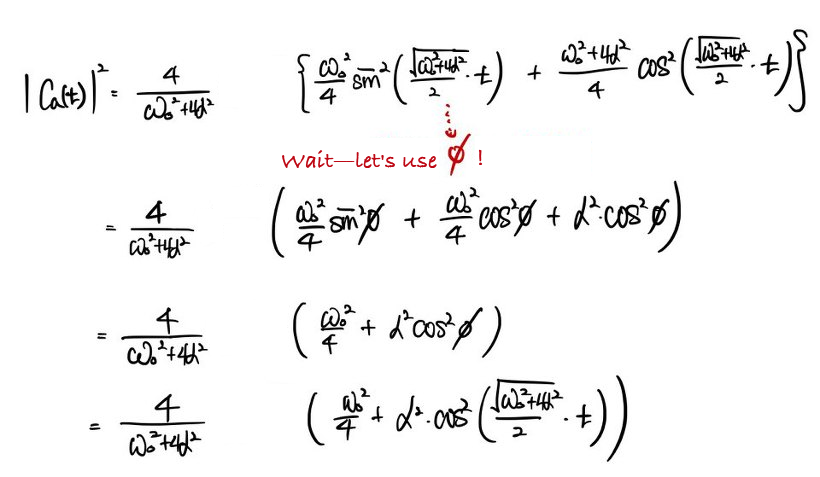 |Ca(t)|² = 4/(ω₀²+4α²) { ω₀²/4 sin²(√(ω₀²+4α²)/2 · t) + (ω₀²+4α²)/4 cos²(√(ω₀²+4α²)/2 · t) }
Wait—let's use ϕ !
= 4/(ω₀²+4α²) ( ω₀²/4 sin²ϕ + ω₀²/4 cos²ϕ + α²·cos²ϕ )
= 4/(ω₀²+4α²) ( ω₀²/4 + α²cos²ϕ )
= 4/(ω₀²+4α²) ( ω₀²/4 + α²·cos²(√(ω₀²+4α²)/2 · t) )